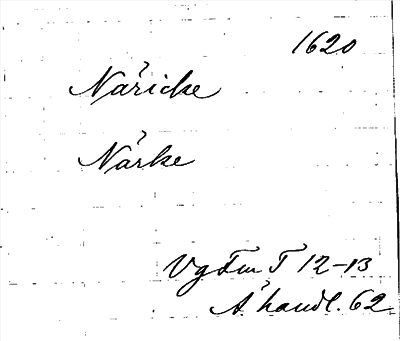 1620
Näricke
Närke
VgFmT 12-13
Ä. handl. 62